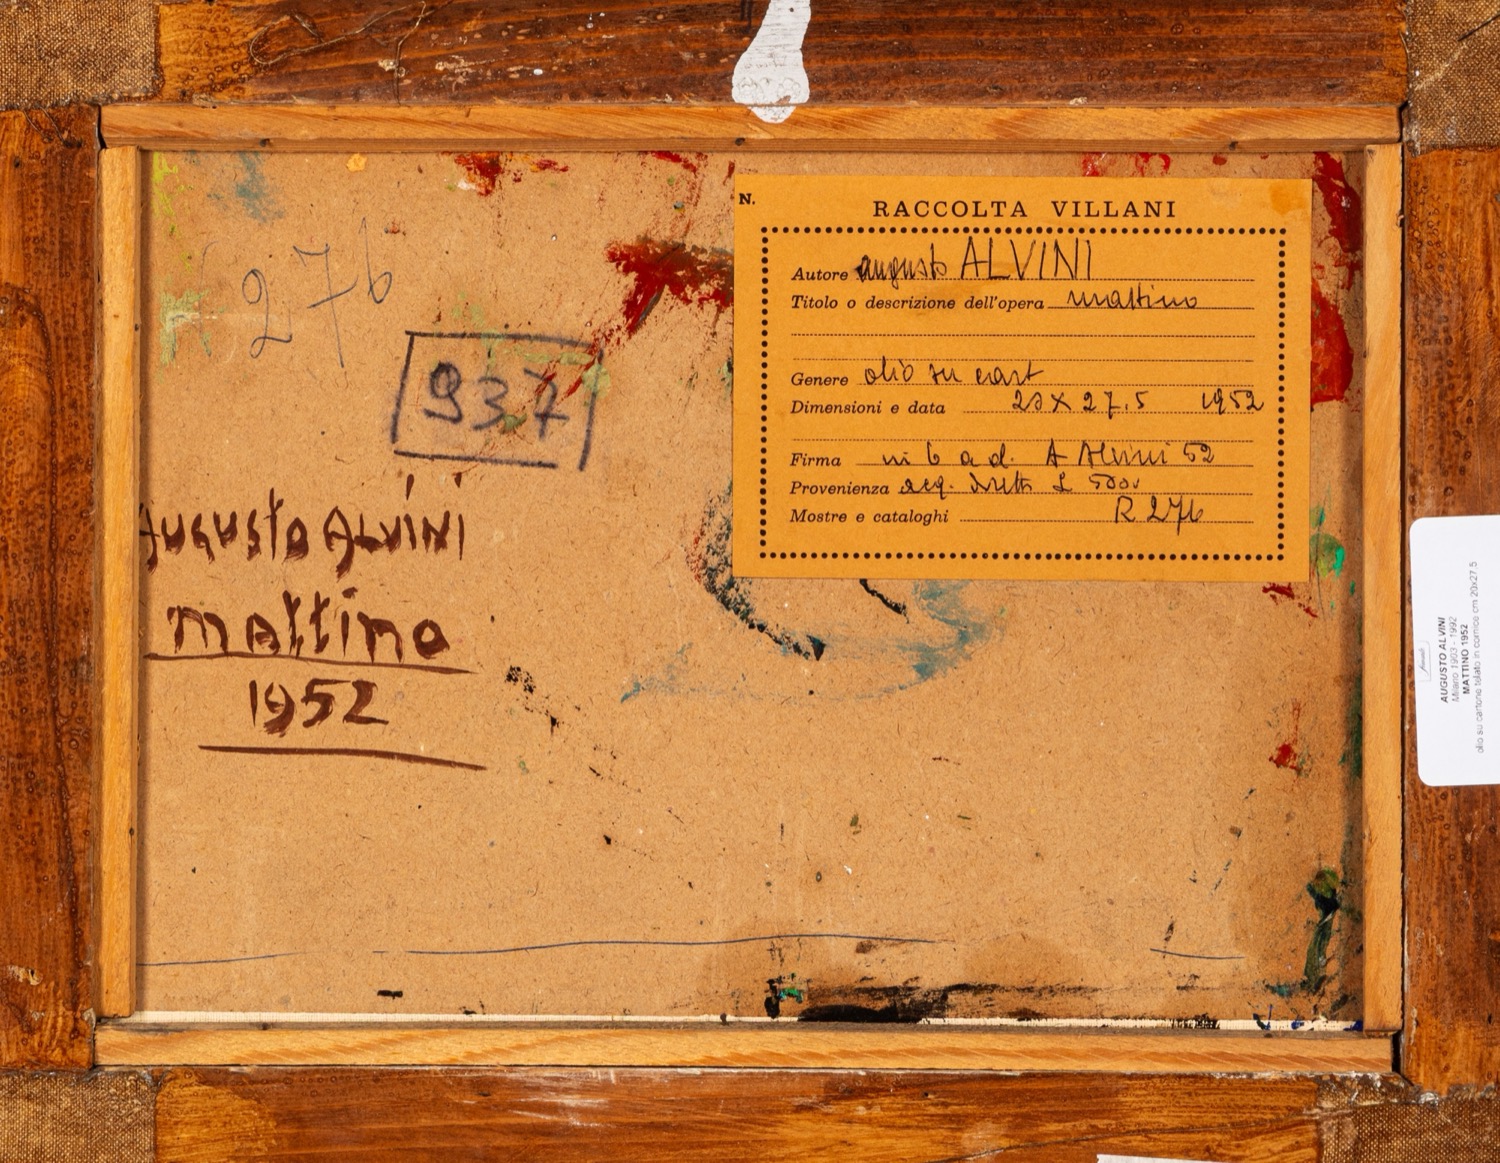 276
937
AUGUSTO ALVINI
mattino
1952
N.
RACCOLTA VILLANI
Autore augusto ALVINI
Titolo o descrizione dell'opera mattino
Genere olio su cart
Dimensioni e data 20 X 27.5 1952
Firma in b a d. A Alvini 52
Provenienza acq. dirett L 5000
Mostre e cataloghi R 276
AUGUSTO ALVINI
Milano 1903 - 1992
MATTINO 1952
olio su cartone telato in cornice cm 20x27.5